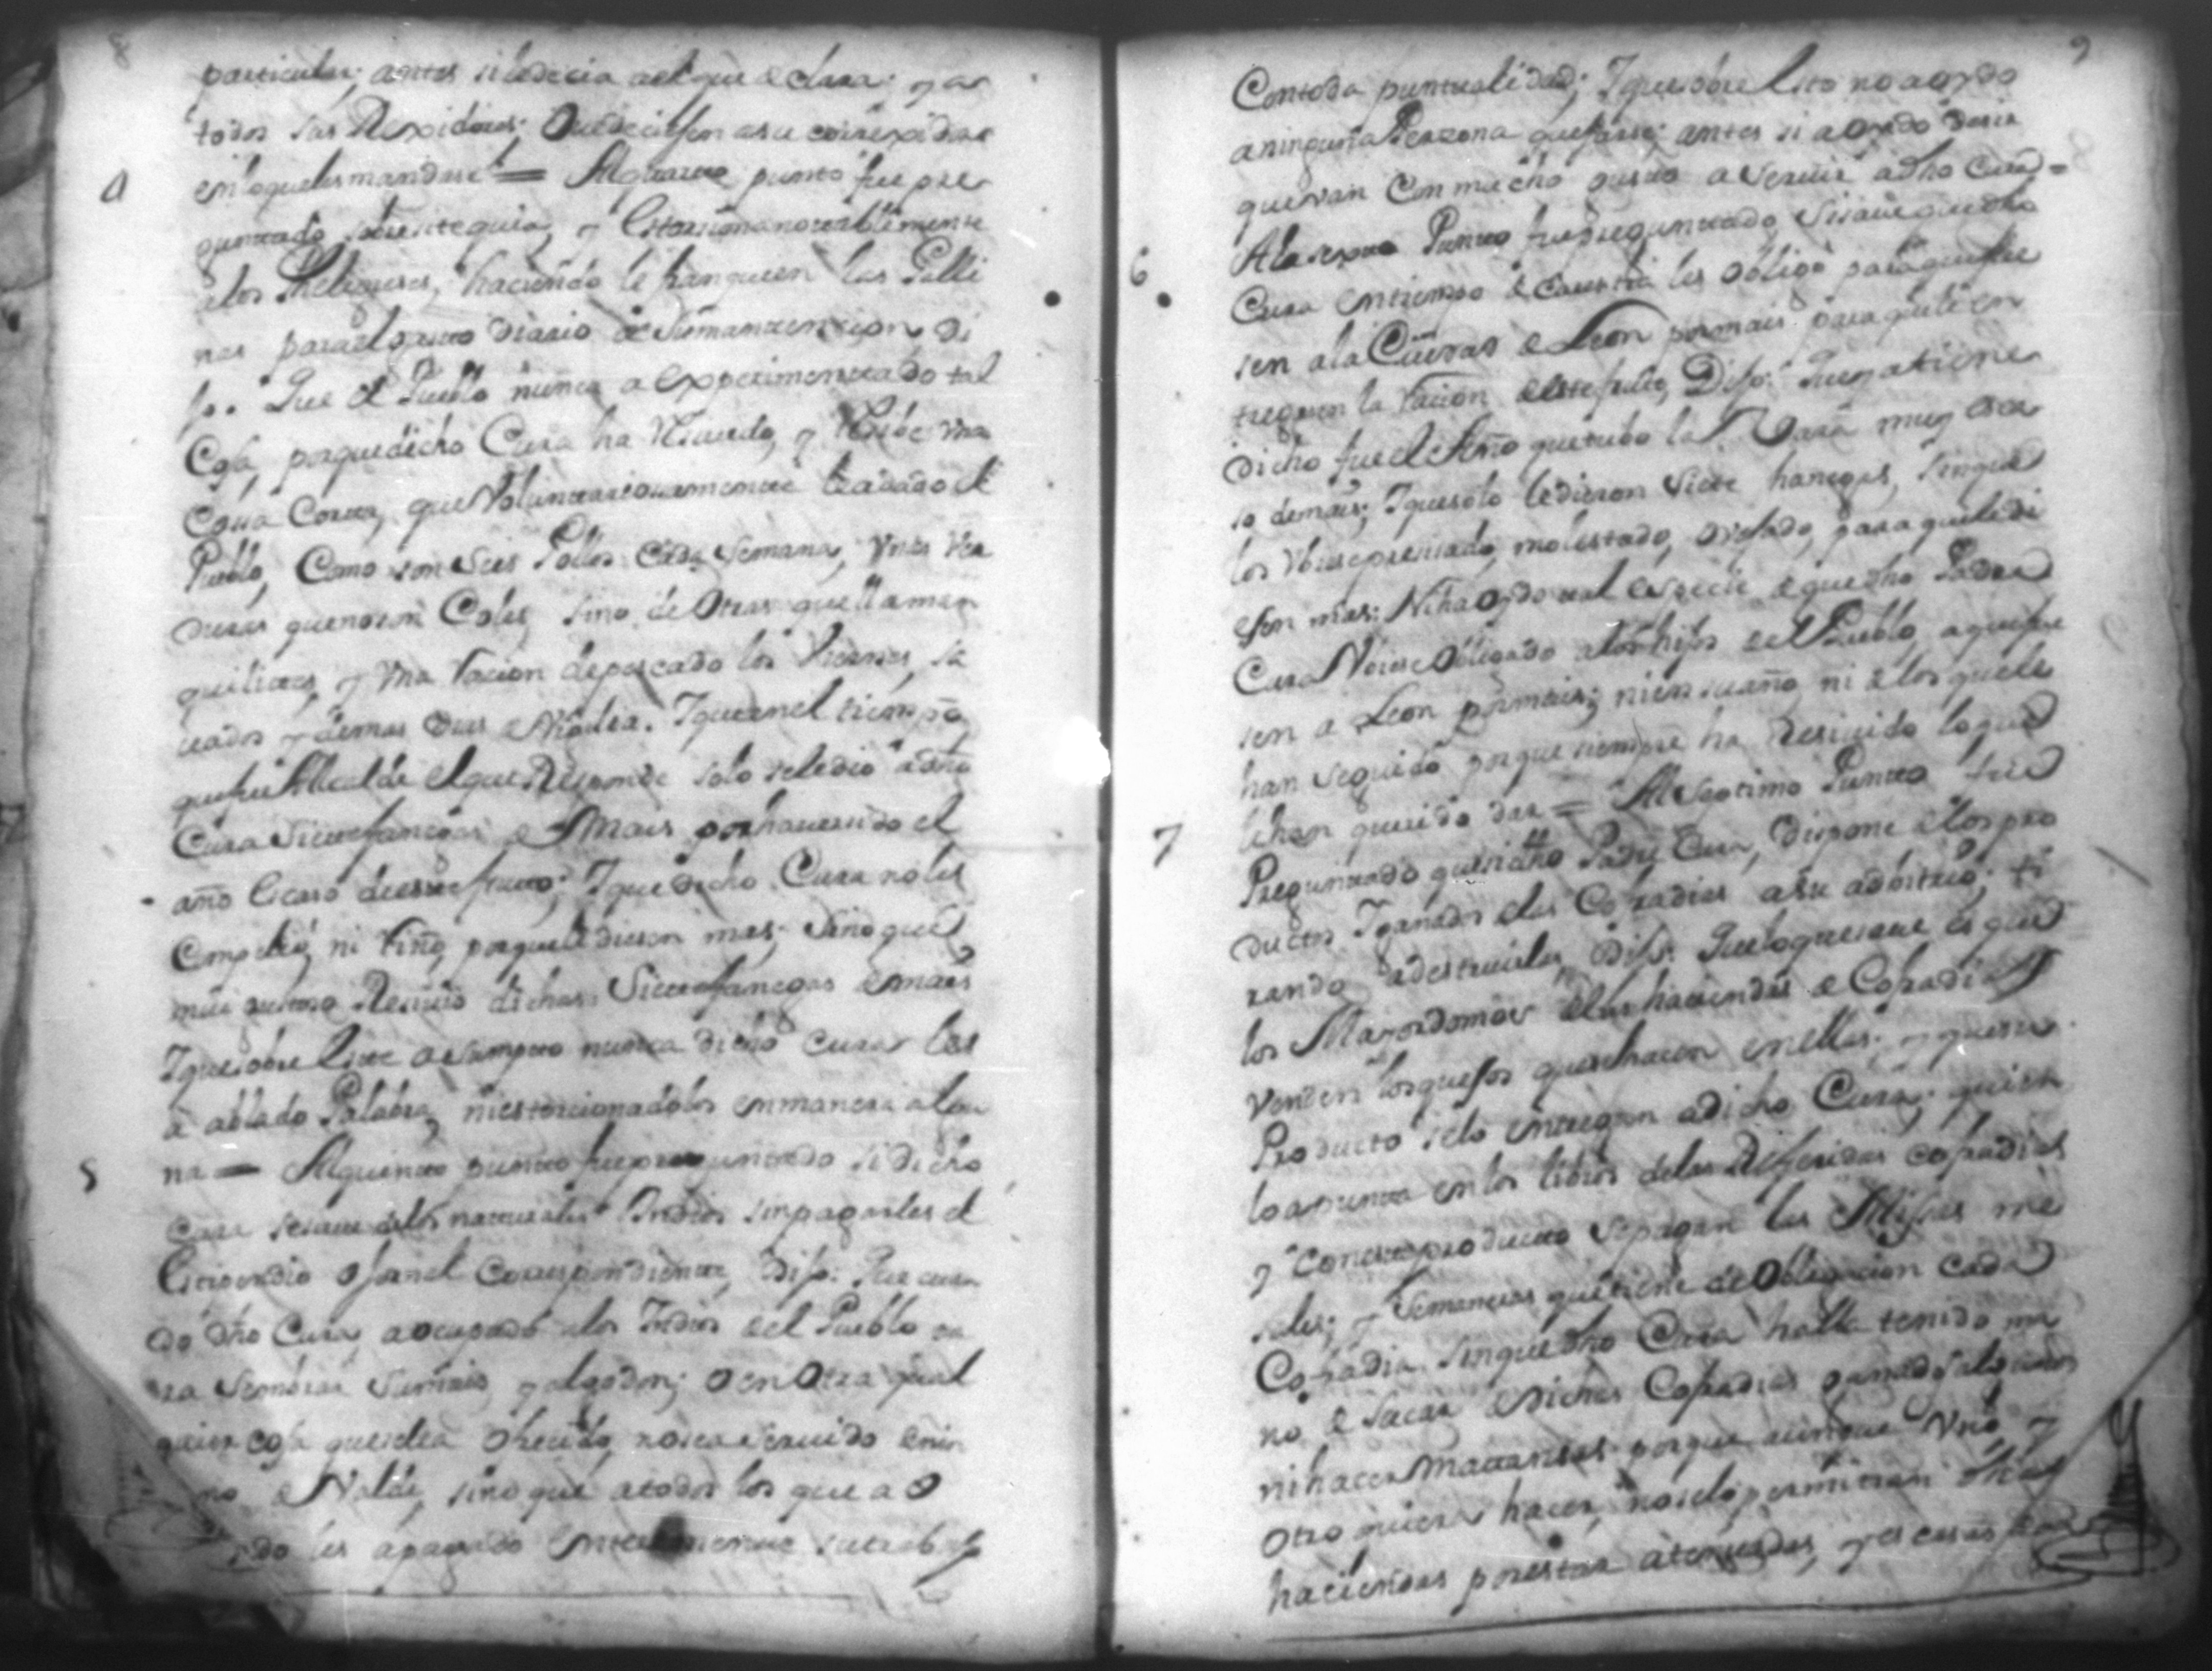 8
particular; antes si le decia a el que declara: y a
todos sus Rexidores: Ovedeciesen a su correxidor
en lo que les mandase = Al quarto punto fue pre
4
guntado, sobre si tequia, y Estorciona notablemente
a los Feligreses, haciendo le franqueen las Galli
nas para el gasto diario de su manutencion Di
jo: Que el Pueblo nunca a Experimentado tal
Cosa, porque dicho Cura ha Resevido, y Reside una
Cossa Corta, que Voluntariamente le a dado el
Pueblo, Como son Seis Pollos Cada Semana, Unas Ver
duras que no son Coles, sino de Otras que llaman
quilites, y Una Racion de pescado los Viernes, sa
vados y demas Dias de Vigilia. Y que en el tiempo
que fue Alcalde el que Responde solo se le dio a dho
Cura Siete fanegas de Mais por haver sido el
año Escaso de este fruto; Y que dicho Cura no les
Compelió, ni riño, porque le diesen mas; Sino que
mui gustoso Resivio dichas Siete fanegas de mais
Y que sobre Este asumpto nunca dicho Cura les
a ablado Palabra, ni estorcionadolos en manera algu
5
na = Al quinto punto fue preguntado si dicho
Cura se sirve de los naturales Indios sin pagarles el
Estipendio o jornal Correspondiente, Dijo: Que cuan
do dho Cura, a ocupado a los Indios del Pueblo pa
ra Sembrar Su mais y algodon; o en Otra qual
quier cosa que se le a Ofrecido, no se a Servido de nin
no de Valde, sino que a todos los que a O
do les a pagado Enteramente su trabajo
9
Con toda puntualidad; Y que sobre Esto no a oydo
a ninguna Perzona quejarse; antes si a Oydo decir
que van Con mucho gusto a Servir a dho Cura =
6
A la sexta Punto fue preguntado Si save que dho
Cura En tiempo de Carestia les Obligó para que fue
sen a la Ciudad de Leon por mais para que le en
treguen la racion de este fruto, Dijo: Que ya tiene
dicho fue el Año que tubo la Vara muy Esca
so de mais; Y que solo le dieron Siete hanegas, sin que
los Vbiese premiado, molestado, o vejado, para que le di
esen mas: Ni ha Oydo tal Especie de que dho Padre
Cura Vbiese Obligado a los hijos de el Pueblo, a que fue
sen a Leon por mais; ni en su año, ni de los que le
han seguido porque siempre ha Resivido lo que
7
le han querido dar = Al Septimo Punto fue
Preguntado que si dho Padre Cura, Dispone de los pro
ductos Y ganados de las Cofradias a su adbitrio; ti
rando a destruirlas, Dijo: Que lo que save es que
los Mayordomos de las haciendas de Cofradias
Venden los quesos que se hacen en ellas; y que su
Producto se lo entregan a dicho Cura; quien
lo apunta en los libros de las Referidas cofradias
y Con este producto se pagan las Misas me
sales, y Semaneras que tiene de Obligacion Cada
Cofradia sin que dho Cura halla tenido ma
no de Sacar de Dichas Cofradias ganados algunos
ni hacer Matansas porque aunque Vno, y
Otro quiera hacer, no se lo permitiran dhas
haciendas por estar atenuadas, y escasas